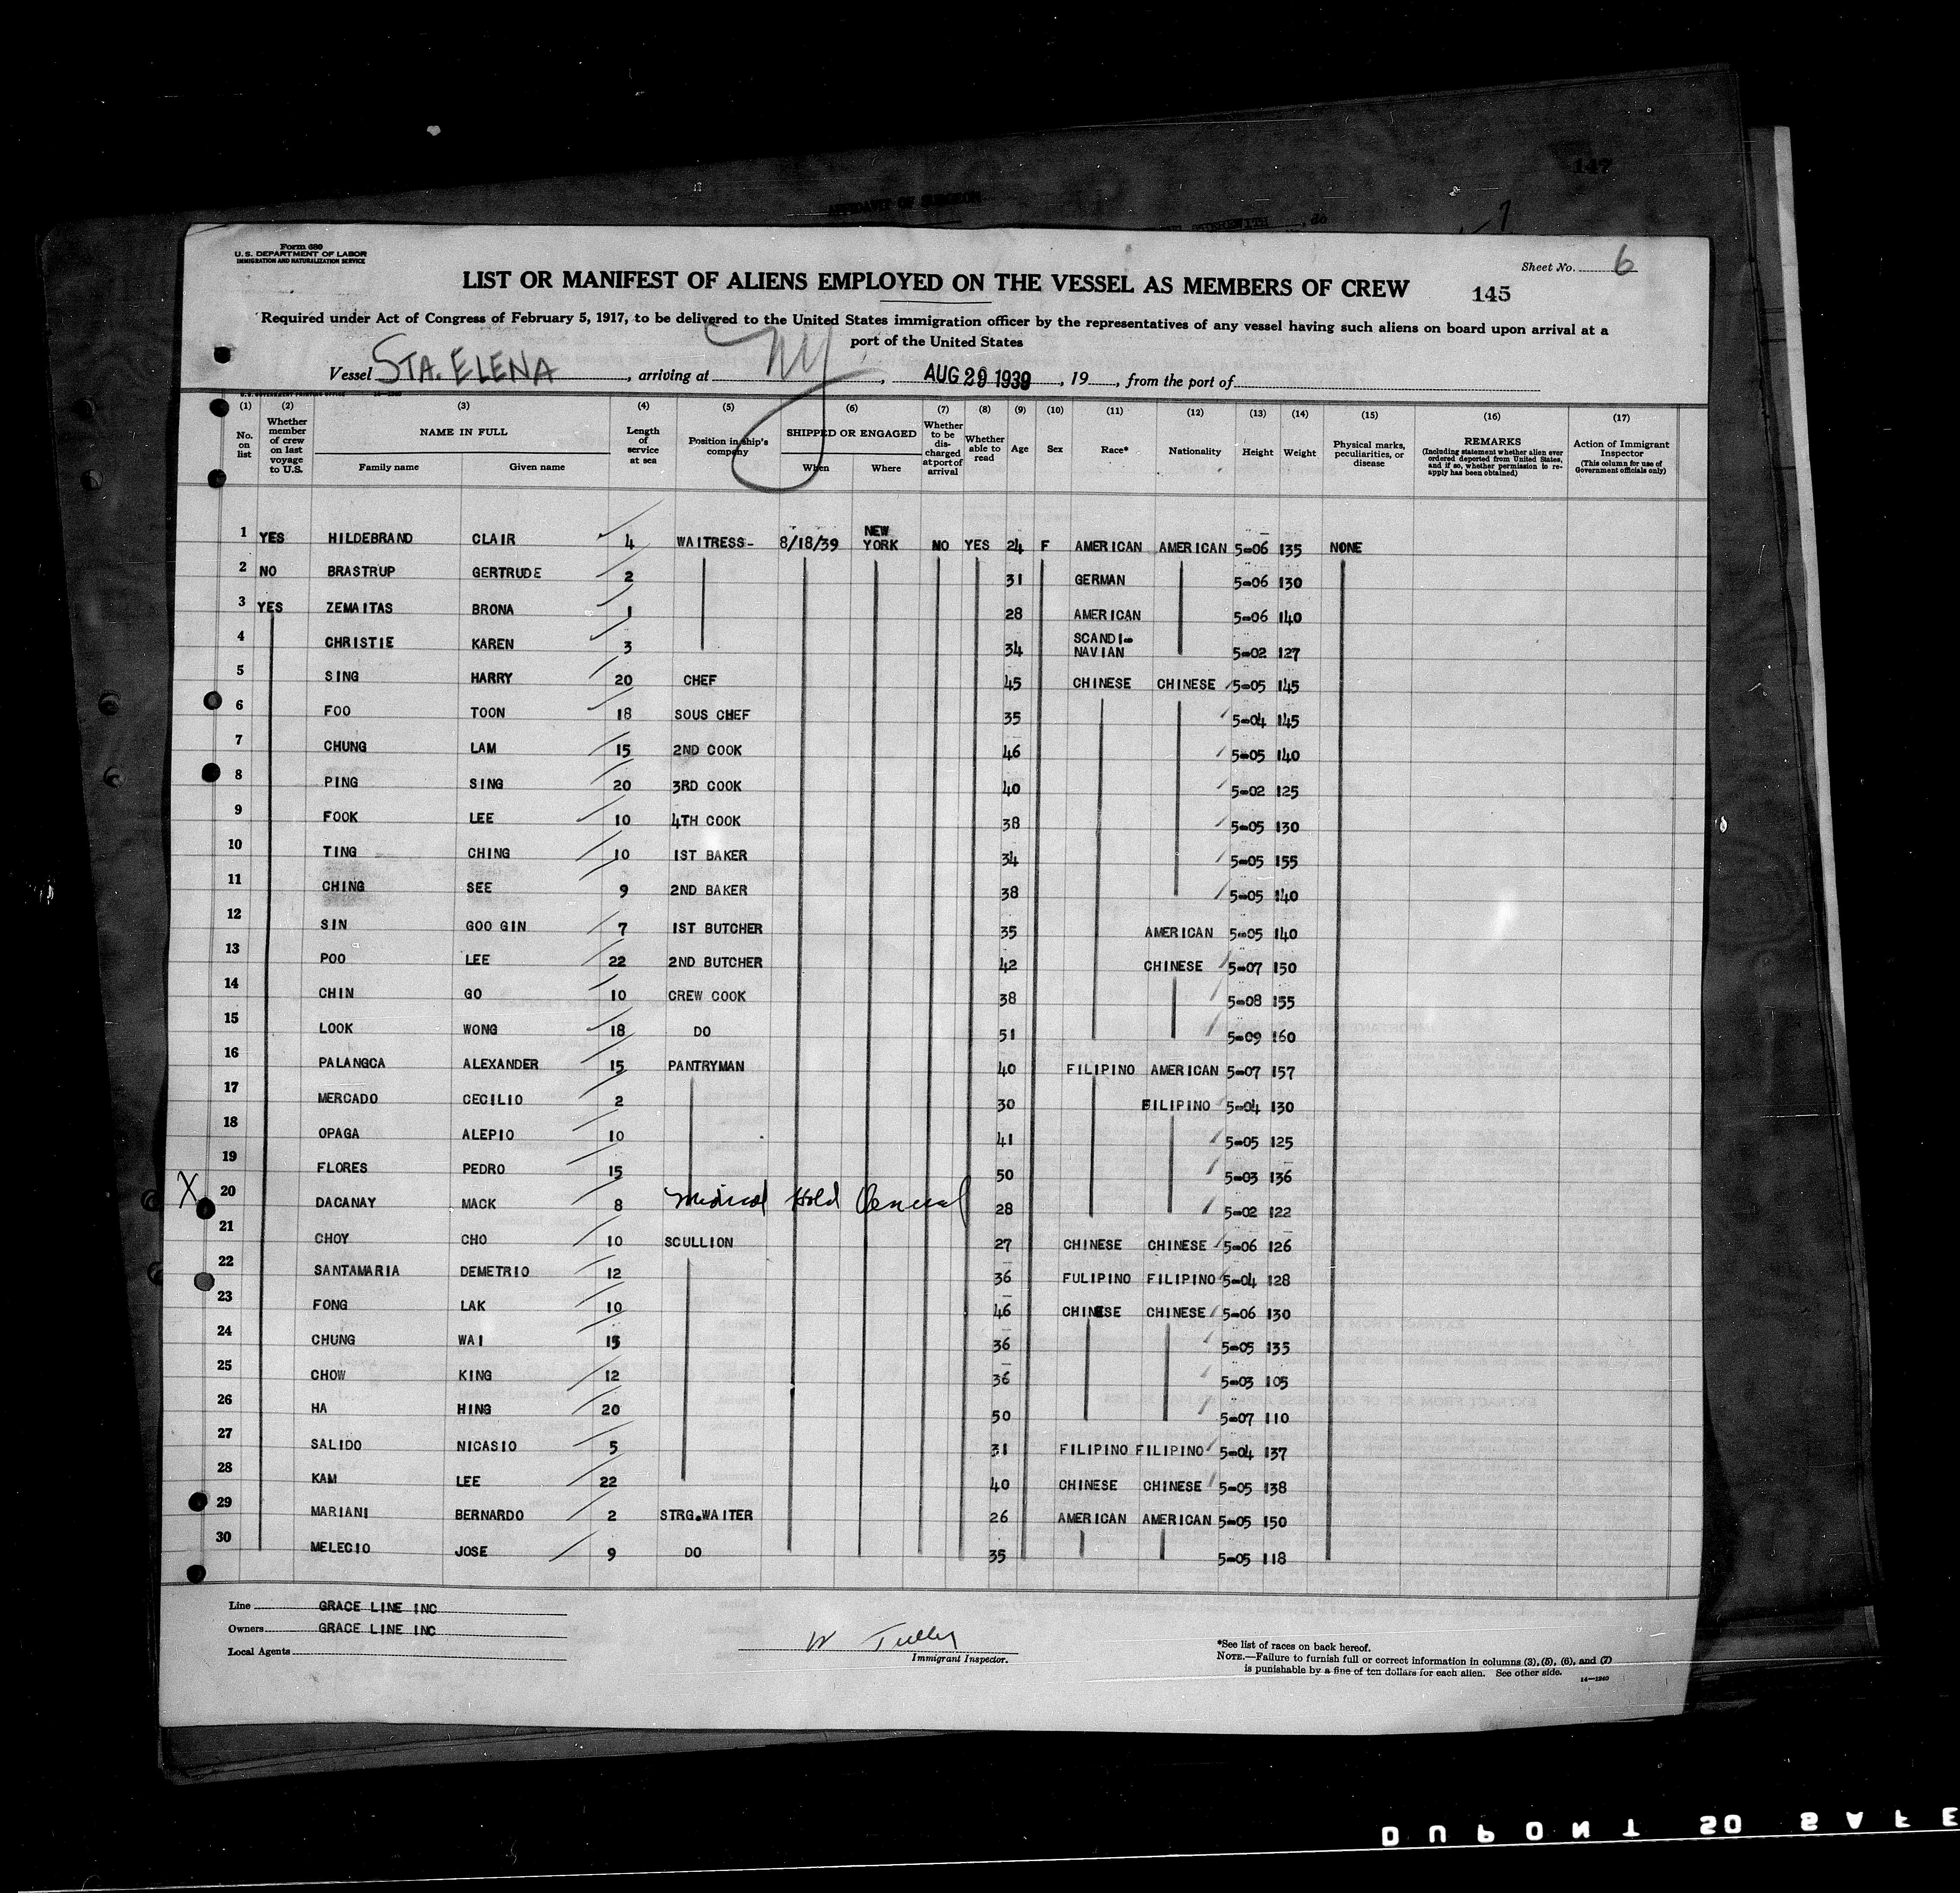 147
AFFIDAVIT OF SURGEON
7
Form 689
U.S. DEPARTMENT OF LABOR
IMMIGRATION AND NATURALIZATION SERVICE
Sheet No. 6
LIST OR MANIFEST OF ALIENS EMPLOYED ON THE VESSEL AS MEMBERS OF CREW 145
Required under Act of Congress of February 5, 1917, to be delivered to the United States immigration officer by the representatives of any vessel having such aliens on board upon arrival at a
port of the United States
Vessel STA. ELENA, arriving at NY, AUG 29 1939, 19, from the port of
(1) (2) (3) (4) (5) (6) (7) (8) (9) (10) (11) (12) (13) (14) (15) (16) (17)
No. on list
Whether member of crew on last voyage to U.S.
NAME IN FULL
Family name Given name
Length of service at sea
Position in ship's company
SHIPPED OR ENGAGED
When Where
Whether to be discharged at port of arrival
Whether able to read
Age Sex Race* Nationality Height Weight
Physical marks, peculiarities, or disease
REMARKS
(Including statement whether alien ever ordered deported from United States, and if so, whether permission to reapply has been obtained)
Action of Immigrant Inspector
(This column for use of Government officials only)
1 YES HILDEBRAND CLAIR 4 WAITRESS- 8/18/39 NEW YORK NO YES 24 F AMERICAN AMERICAN 5-06 135 NONE
2 NO BRASTRUP GERTRUDE 2 31 GERMAN 5-06 130
3 YES ZEMAITAS BRONA 1 28 AMERICAN 5-06 140
4 CHRISTIE KAREN 3 34 SCANDI-NAVIAN 5-02 127
5 SING HARRY 20 CHEF 45 CHINESE CHINESE 5-05 145
6 FOO TOON 18 SOUS CHEF 35 5-04 145
7 CHUNG LAM 15 2ND COOK 46 5-05 140
8 PING SING 20 3RD COOK 40 5-02 125
9 FOOK LEE 10 4TH COOK 38 5-05 130
10 TING CHING 10 1ST BAKER 34 5-05 155
11 CHING SEE 9 2ND BAKER 38 5-05 140
12 SIN GOO GIN 7 1ST BUTCHER 35 AMERICAN 5-05 140
13 POO LEE 22 2ND BUTCHER 42 CHINESE 5-07 150
14 CHIN GO 10 CREW COOK 38 5-08 155
15 LOOK WONG 18 DO 51 5-09 160
16 PALANGCA ALEXANDER 15 PANTRYMAN 40 FILIPINO AMERICAN 5-07 157
17 MERCADO CECILIO 2 30 FILIPINO 5-04 130
18 OPAGA ALEPIO 10 41 5-05 125
19 FLORES PEDRO 15 50 5-03 136
X 20 DACANAY MACK 8 Medical Hold General 28 5-02 122
21 CHOY CHO 10 SCULLION 27 CHINESE CHINESE 5-06 126
22 SANTAMARIA DEMETRIO 12 36 FULIPINO FILIPINO 5-04 128
23 FONG LAK 10 46 CHINESE CHINESE 5-06 130
24 CHUNG WAI 15 36 5-05 135
25 CHOW KING 12 36 5-03 105
26 HA HING 20 50 5-07 110
27 SALIDO NICASIO 5 31 FILIPINO FILIPINO 5-04 137
28 KAM LEE 22 40 CHINESE CHINESE 5-05 138
29 MARIANI BERNARDO 2 STRG.WAITER 26 AMERICAN AMERICAN 5-05 150
30 MELECIO JOSE 9 DO 35 5-05 118
Line GRACE LINE INC
Owners GRACE LINE INC
Local Agents
W Tulley
Immigrant Inspector.
*See list of races on back hereof.
NOTE.—Failure to furnish full or correct information in columns (3), (5), (6), and (7)
is punishable by a fine of ten dollars for each alien. See other side.
14—1240
DUPONT SAFE